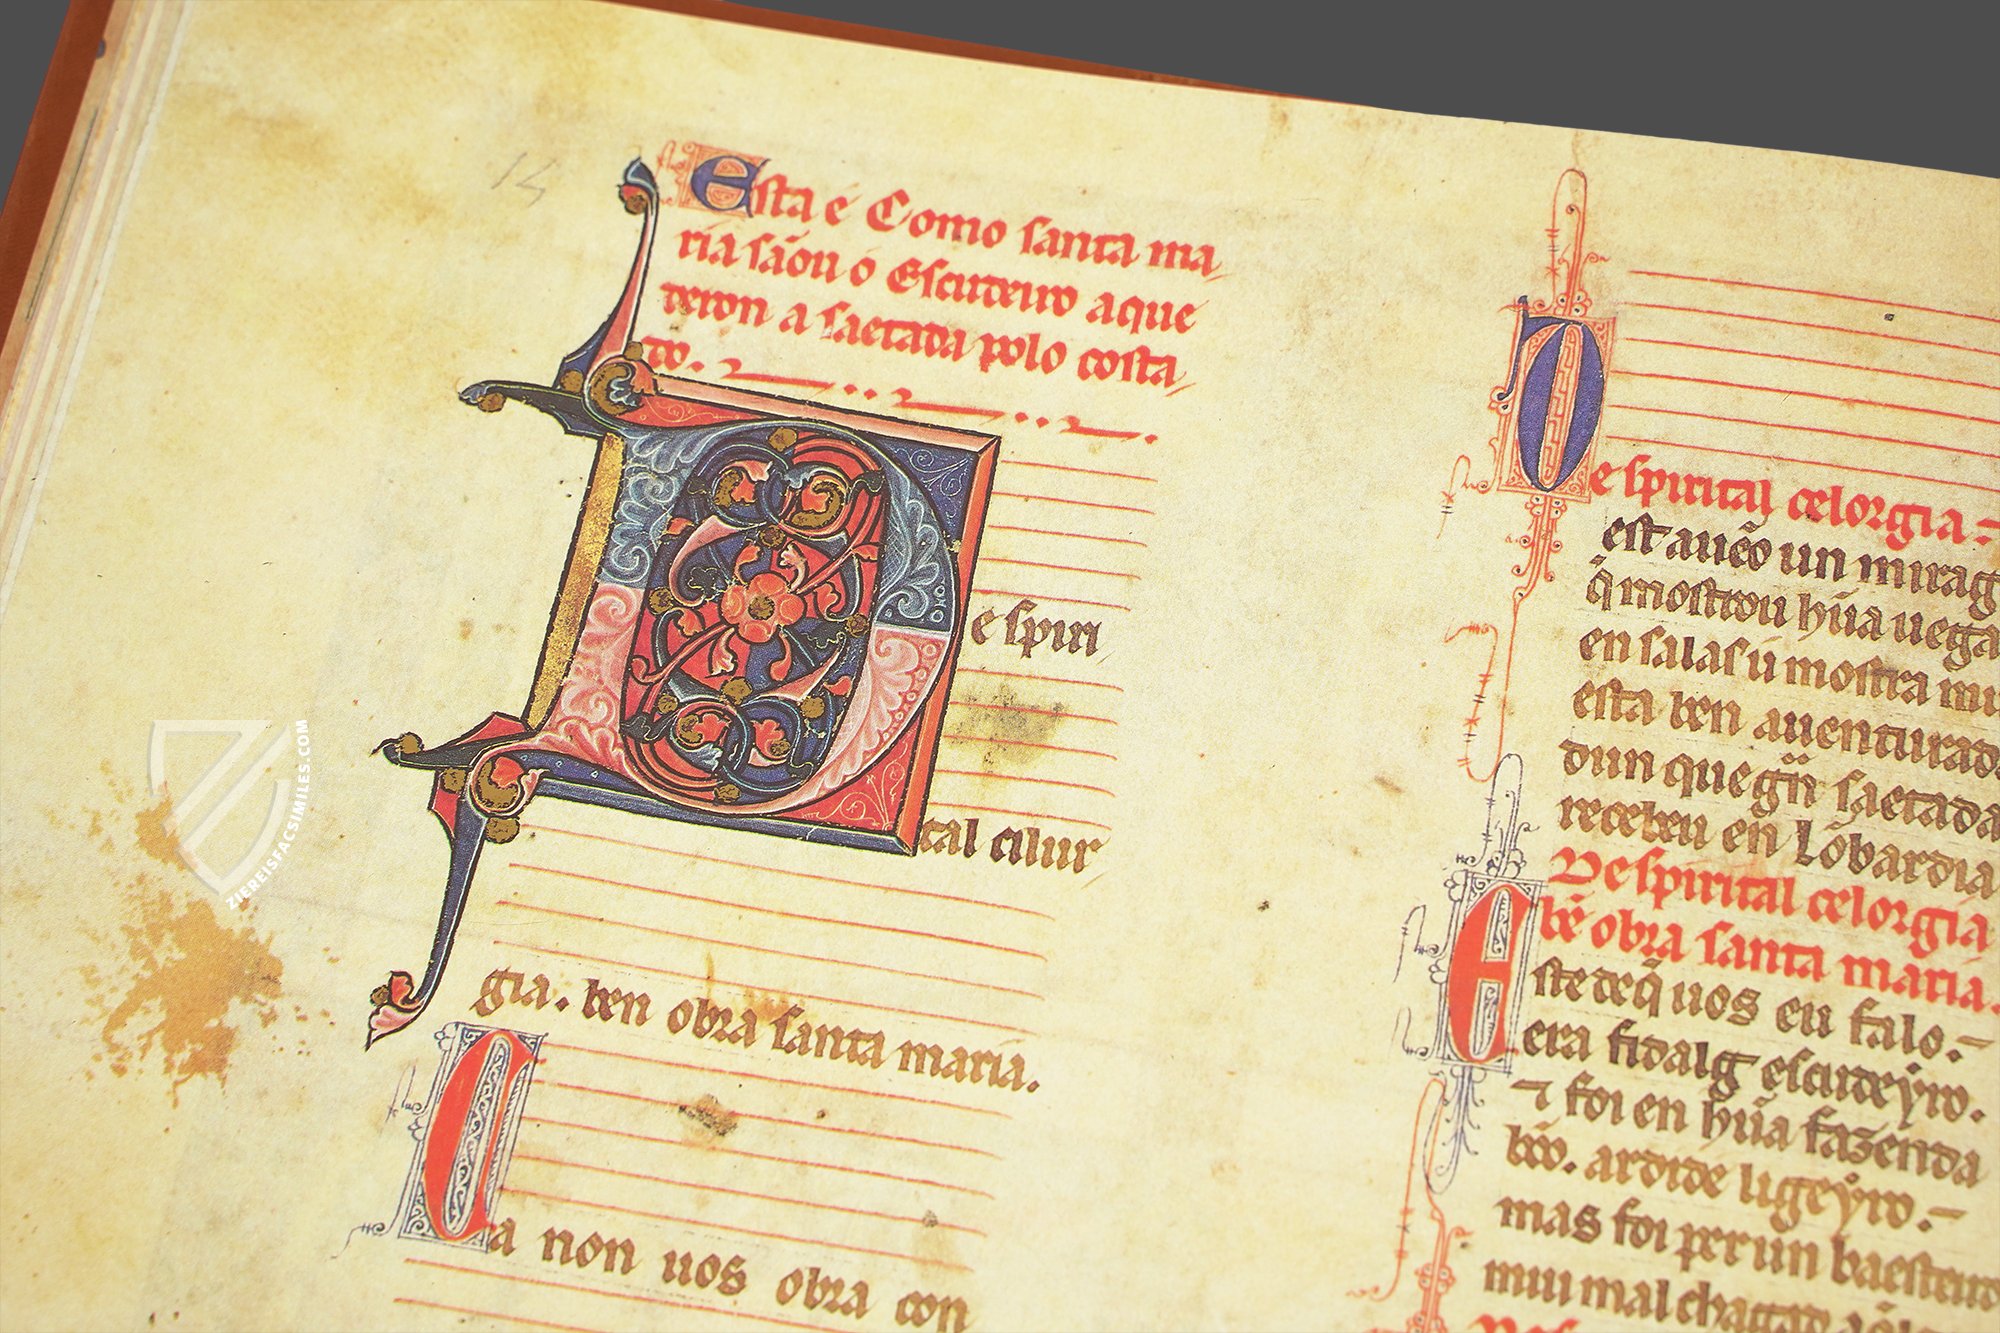 Esta é Como santa ma
ria sãou ó Escudeiro aque
deron a saetada polo costa
do.
De spiri
tal cilur
gia. ben obra santa maria.
Ca non uos obra con
De spirital celorgia
est auẽo un mirag
q̃ mostrou hũa uega
en salas ú mostra mu
esta ben auenturad
dun que gñ saetada
recebeu en Lõbardia
De spirital celorgia
bẽ obra santa maria.
Este de q̃ uos eu falo.
era fidalg escudeyro.
⁊ foi en hũa fazenda
bõo. ardid e ligeyro.
mas foi per un baesteiro
mui mal chagad
ZIEREISFACSIMILES.COM